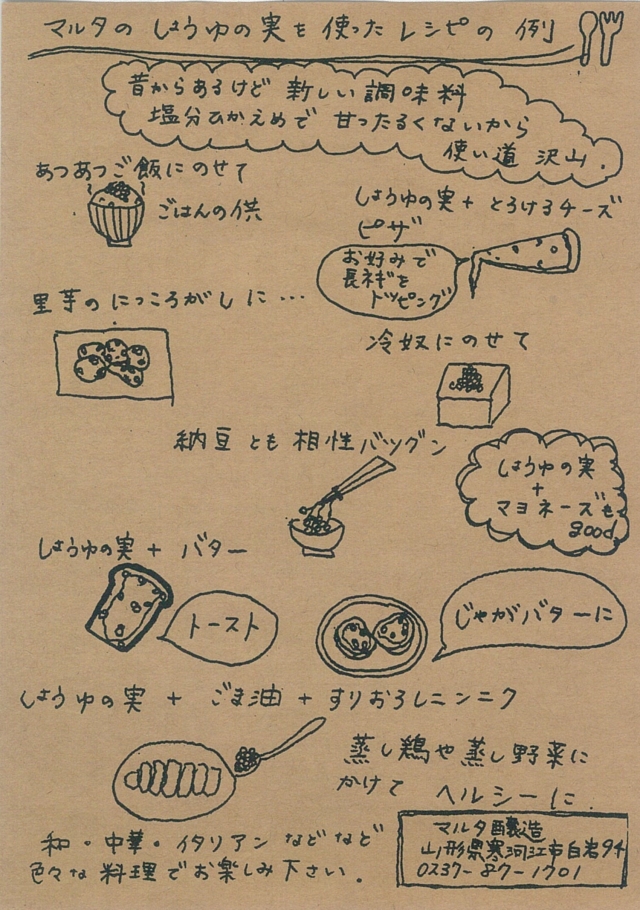 マルタの しょうゆの実を 使った レシピの 例
昔からあるけど 新しい調味料
塩分ひかえめで 甘ったるくないから
使い道 沢山.
あつあつご飯にのせて
ごはんの供
しょうゆの実 + とろけるチーズ
ピザ
お好みで
長ネギを
トッピング
里芋のにっころがしに...
冷奴にのせて
納豆とも相性バツグン
しょうゆの実
+
マヨネーズも
good
しょうゆの実 + バター
トースト
じゃがバターに
しょうゆの実 + ごま油 + すりおろしニンニク
蒸し鶏や蒸し野菜に
かけて ヘルシーに.
和・中華・イタリアン などなど
色々な料理でお楽しみ下さい.
マルタ醸造
山形県寒河江市白岩94
0237-87-1701